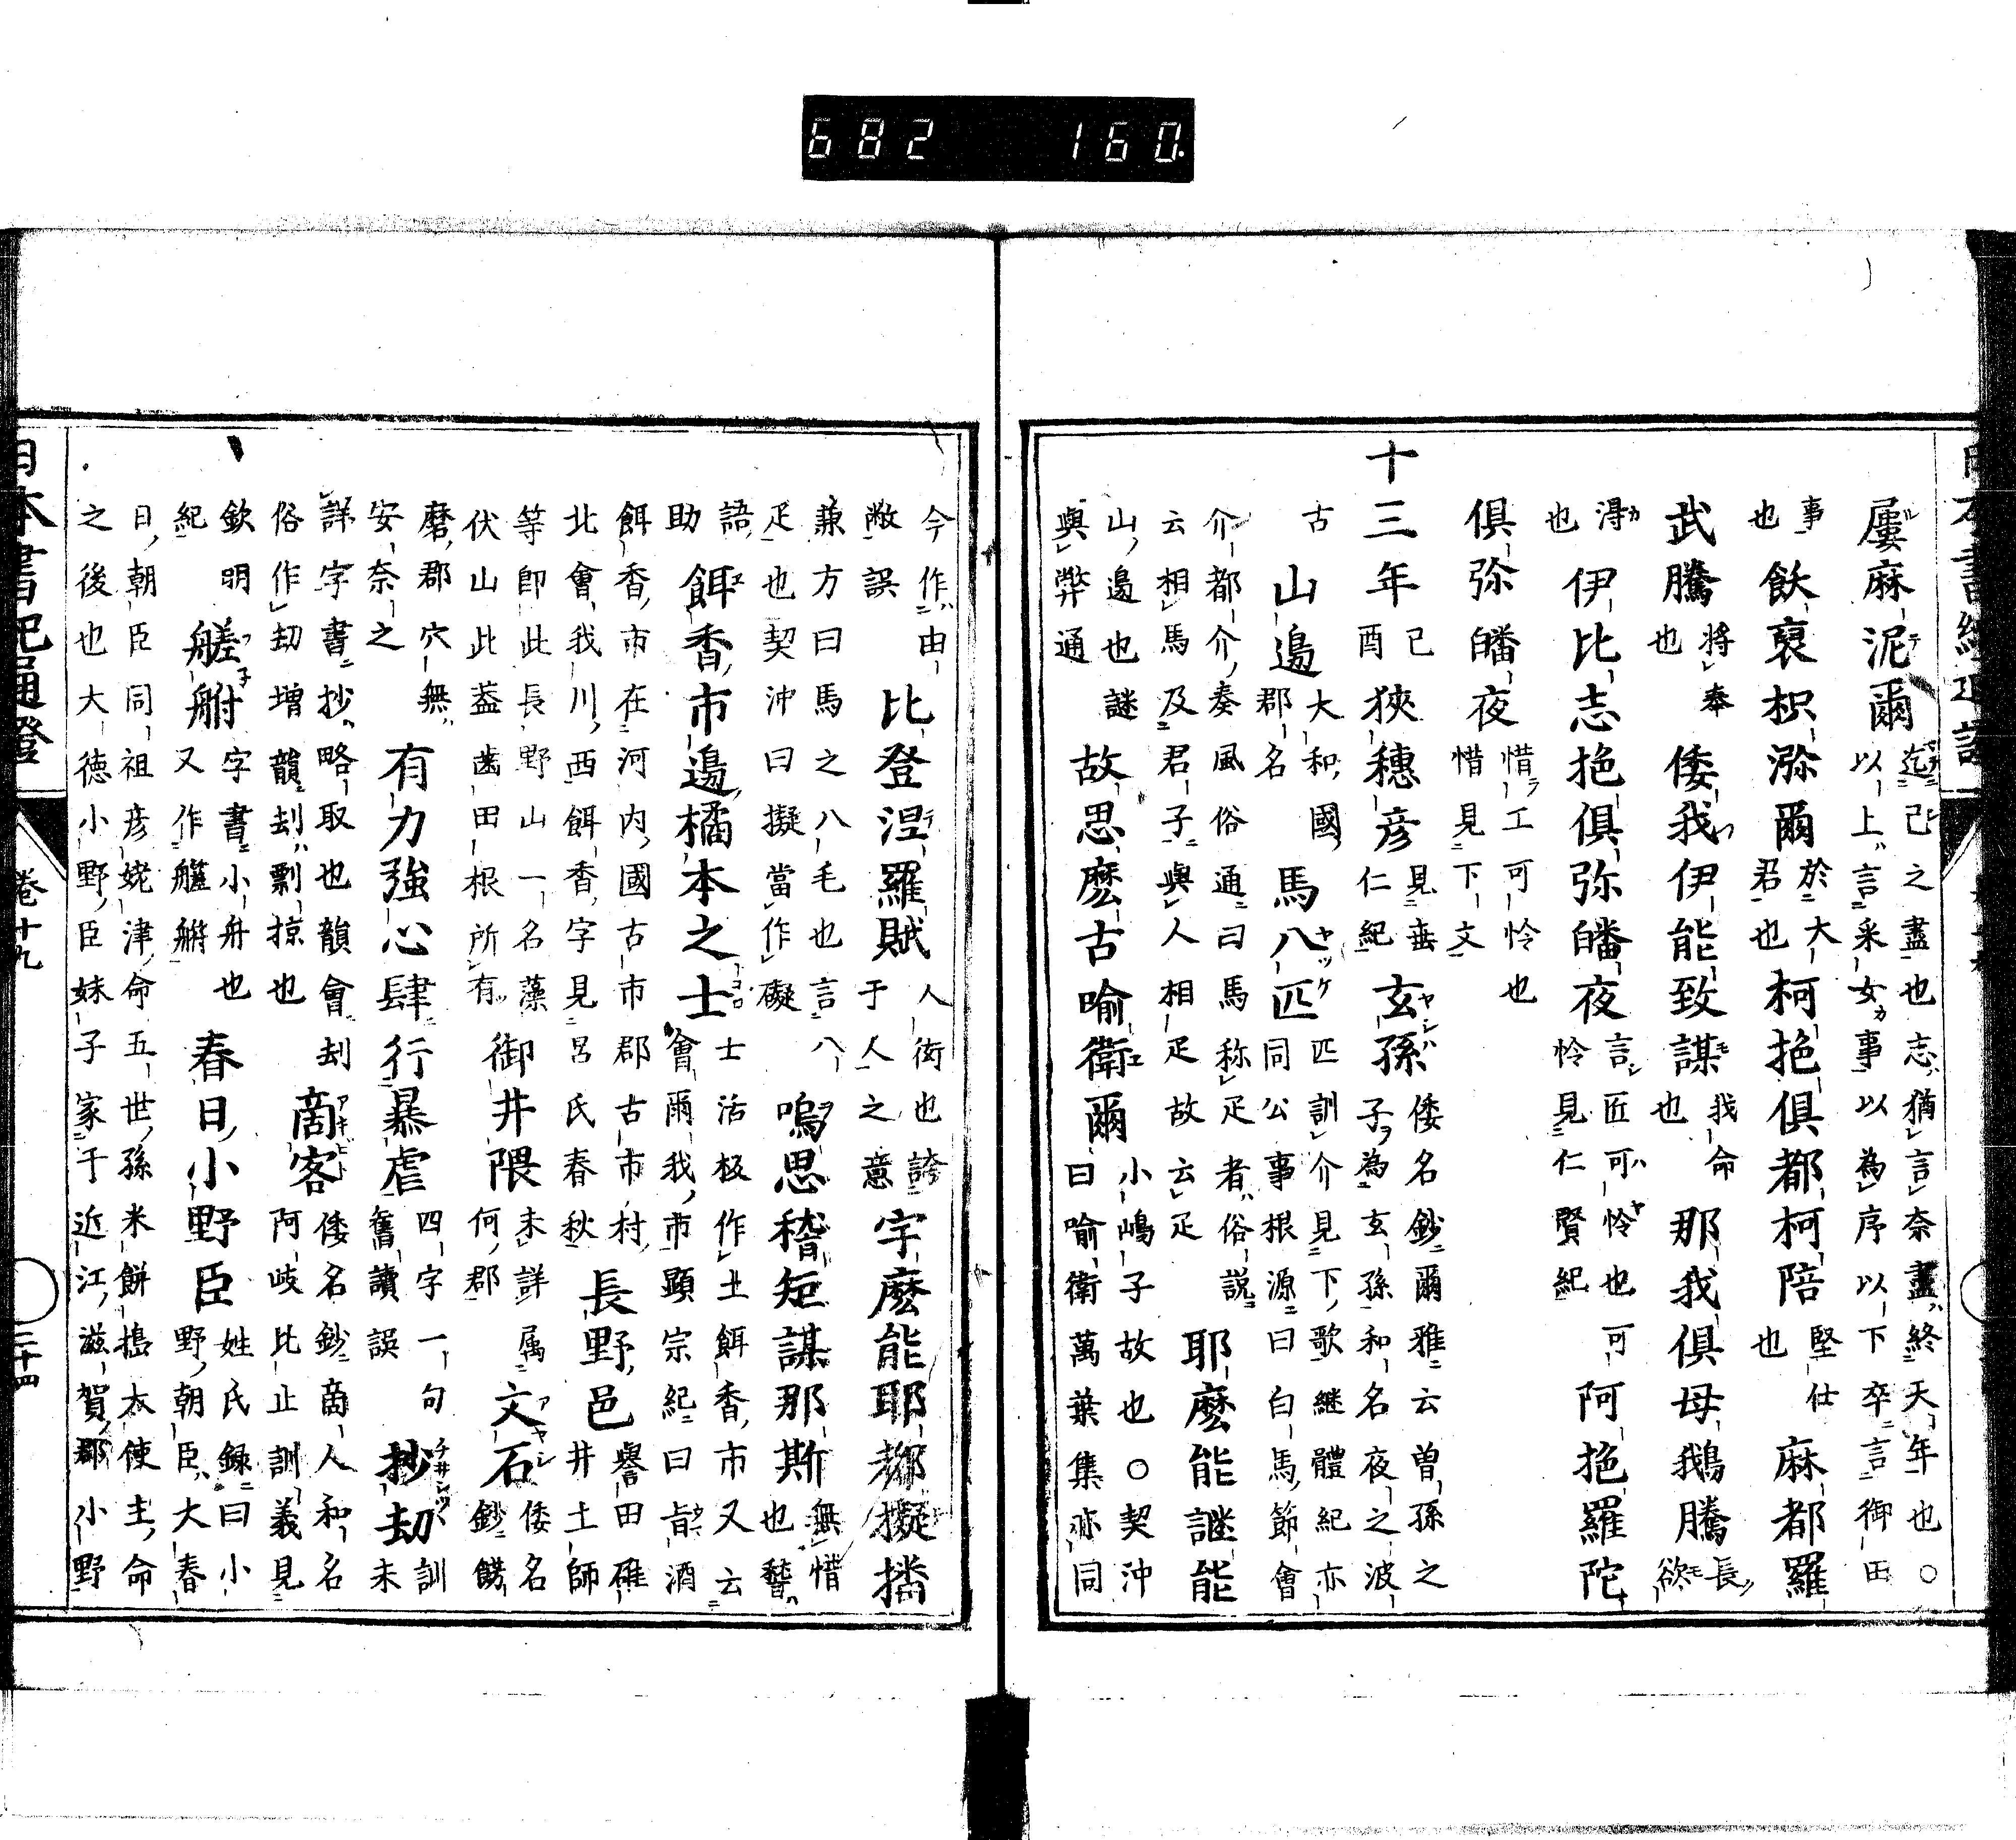 682 160.
屢麻泥爾 迄己之盡也志猶言奈盡終天年也○
以上言采女事以為序以下卒言御田
事也 飲裒枳瀰爾 於大君也 柯拖俱都柯陪 堅仕也 麻都羅
武騰 將奉也 倭我伊能致謀 我命也 那我俱母鵝騰 長欲
得也 伊比志拖俱弥皤夜 言匠可怜也可怜見仁賢紀 阿拖羅陀
俱弥皤夜 惜工可怜也惜見下文
十三年 己酉 狹穗彦 見垂仁紀 玄孫 倭名鈔爾雅云曽孫之子為玄孫和名夜之波古
山邊 大和國郡名 馬八匹 匹訓介見下歌継體紀亦同公事根源曰白馬節會
介都介奏風俗通曰馬称疋者俗説
云相馬及君子與人相疋故云疋 耶麽能謎能
山邊也謎與弊通 故思麽古喻衛爾 小嶋子故也○契沖曰喻衛萬葉集亦同
今作由敝誤 比登涅羅賦 人衒也誇于人之意 宇麽能耶都擬播
兼方曰馬之八毛也言八疋也契沖曰擬當作礙 嗚思稽矩謀那斯 無惜也瞽
語助 餌香市邊橘本之土 士活板作土餌香市又云
餌香市在河内國古市郡古市村 會爾我市顯宗紀曰旨酒
北會我川西餌香字見呂氏春秋 長野邑 譽田碓井土師
等卽此長野山一名藻伏山此葢歯田根所有 御井隈 未詳何郡 文石 倭名鈔饒
磨郡安奈之 穴無 有力強心肆行暴虐 四字一句舊讀誤 抄劫 訓未
詳字書抄略取也韻會刦俗作刧増韻刦剽掠也 商客 倭名鈔商人和名阿岐比止訓義見
欽明紀 艖䑧 字書小舟也又作艬艄 春日小野臣 姓氏録曰小野朝臣大春
日朝臣同祖彦姥津命五世孫米餅搗大使主命
之後也大徳小野臣妹子家于近江滋賀郡小野
日本書紀通證 卷十九 二十四